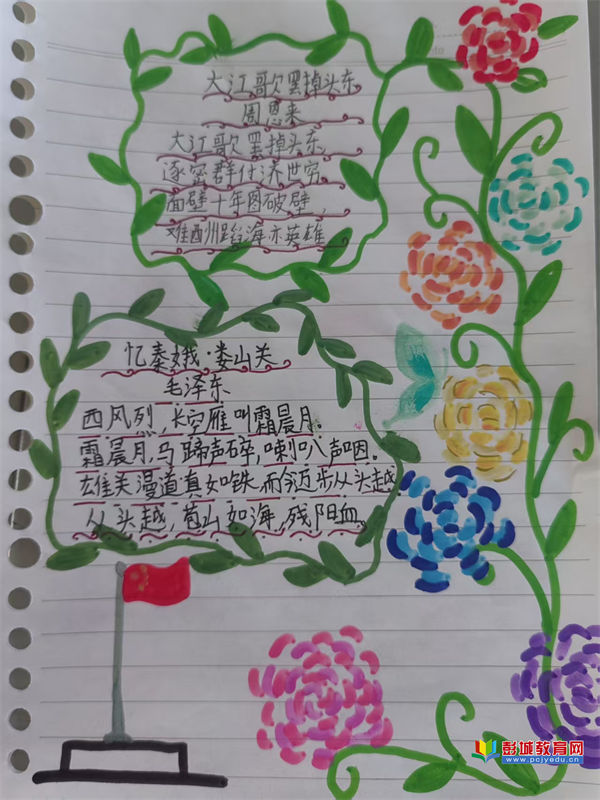 大江歌罢掉头东
周恩来
大江歌罢掉头东,
邃密群科济世穷。
面壁十年图破壁,
难酬蹈海亦英雄
忆秦娥·娄山关
毛泽东
西风烈,长空雁叫霜晨月.
霜晨月,马蹄声碎,喇叭声咽.
雄关漫道真如铁,而今迈步从头越.
从头越,苍山如海,残阳血。
彭城教育网
www.pcjyedu.cn